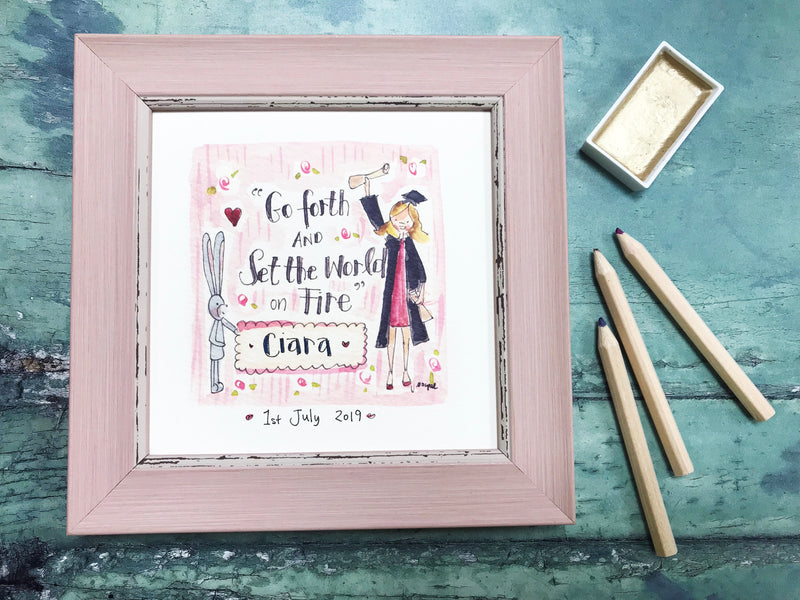 "Go forth
AND
Set the World
on Fire"
Ciara
1st July 2019